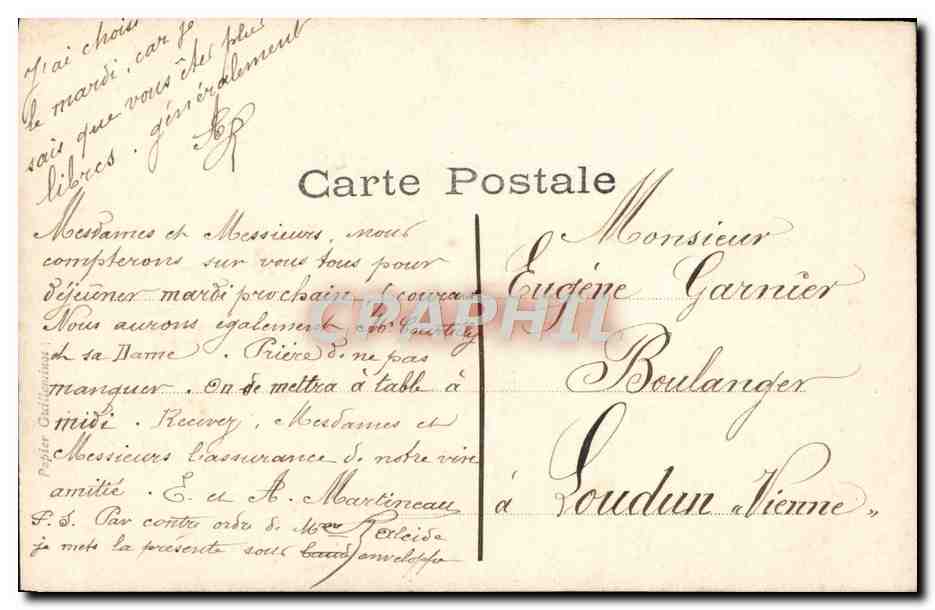 J'ai choisi
le mardi, car je
sais que vous êtes plus
libres. généralement
AR
Carte Postale
Mesdames et Messieurs, nous
compterons sur vous tous pour
déjeuner mardi prochain, courant
Nous aurons également Mr
et sa Dame. Prière de ne pas
manquer. on de mettra à table à
midi. Recevez, Mesdames et
Messieurs l'assurance de notre vive
amitié. E. et A. Martineau
P.S. Par contre ordre de Mme
je mets la présente sous enveloppe
Monsieur
Eugéne Garnier
Boulanger
à Loudun „Vienne„
Papier Guilleminot
CPAPHIL